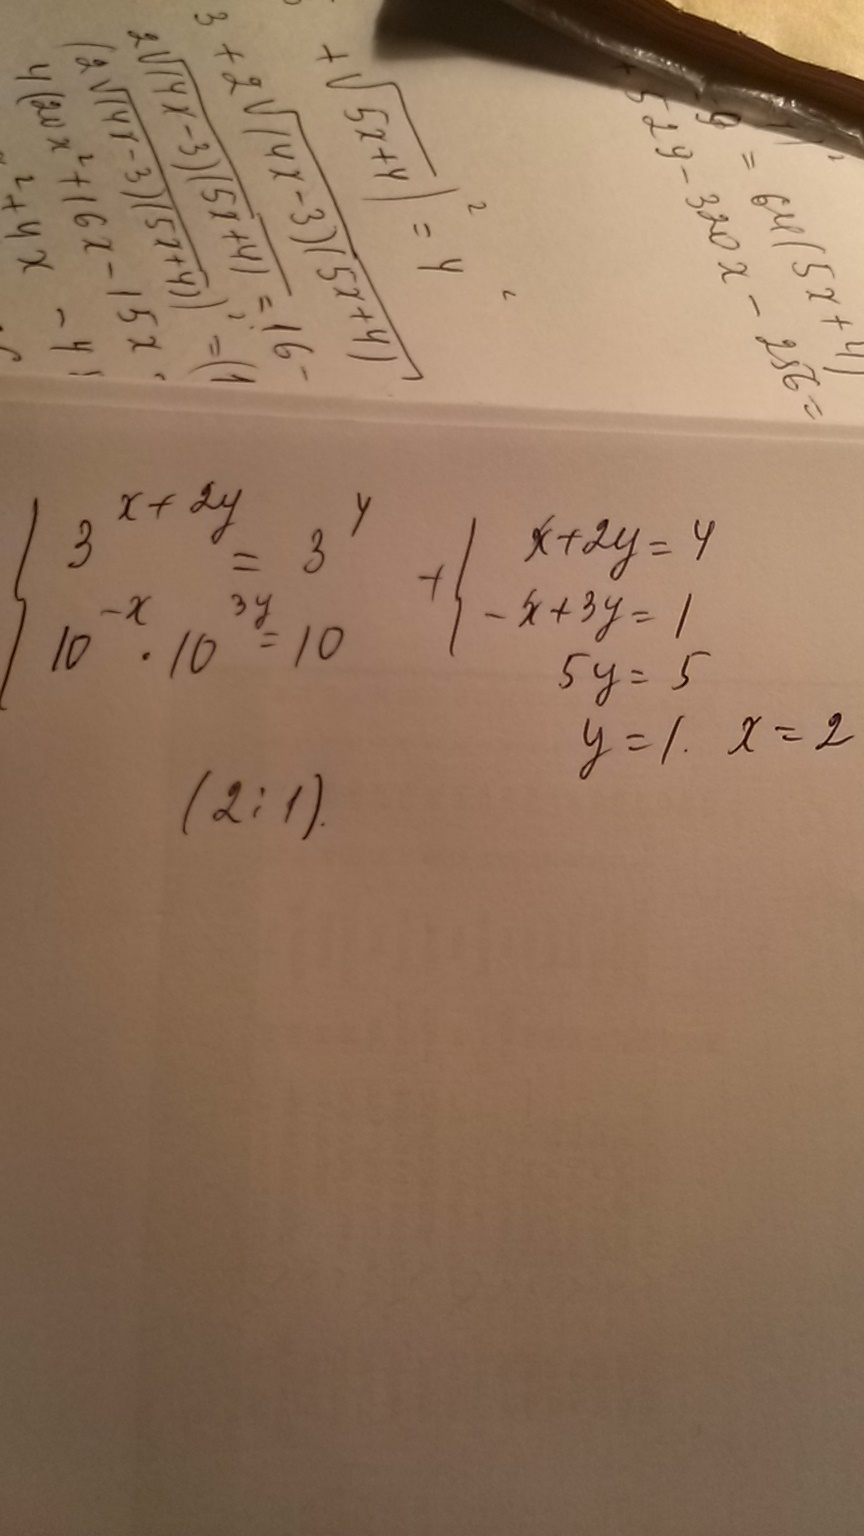 +√(5x+4))² = 4²
3 + 2√(4x-3)(5x+4)
2√(4x-3)(5x+4) = 16-
(2√(4x-3)(5x+4))² = (1
4(20x²+16x-15x
²+4x - 4
9 = 64(5x+4)
+529-320x-256=
{ 3^(x+2y) = 3^4
10^(-x) · 10^(3y) = 10
+{ x+2y=4
-x+3y=1
5y=5
y=1. x=2
(2;1).